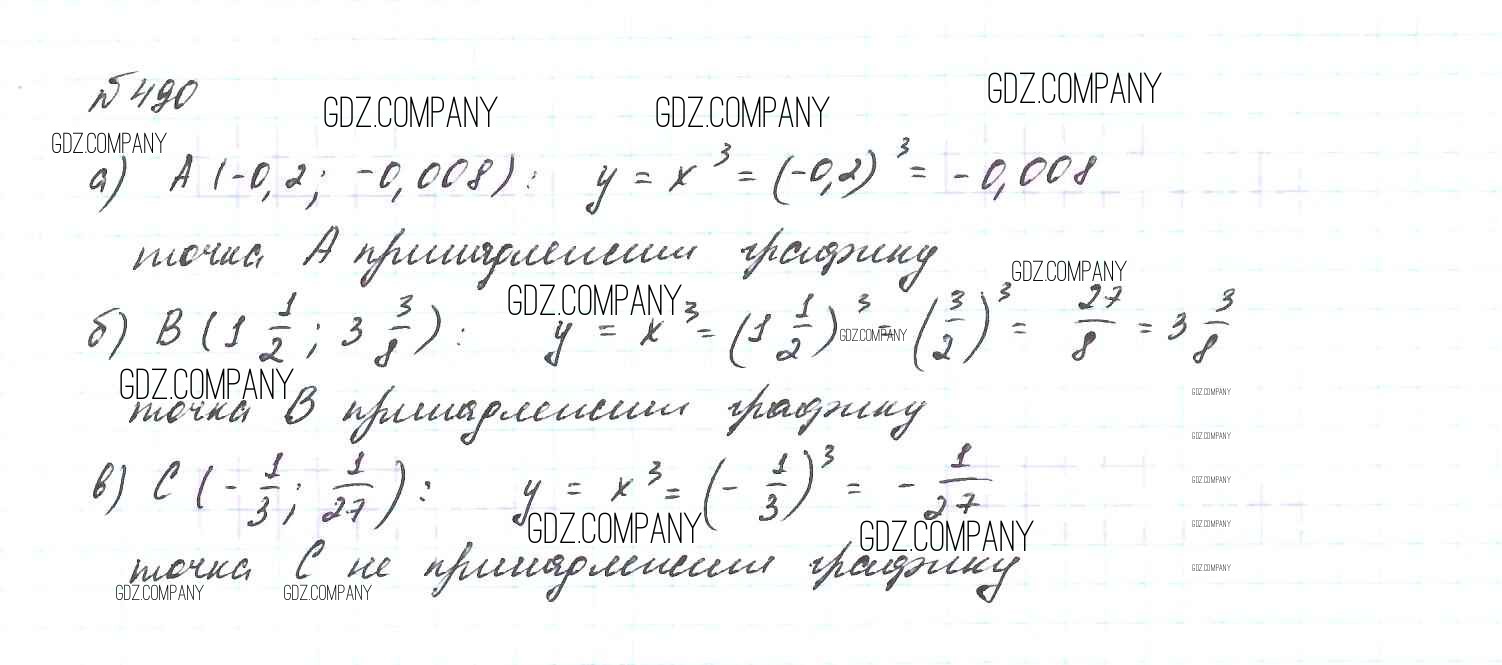 № 490
GDZ.COMPANY GDZ.COMPANY GDZ.COMPANY
GDZ.COMPANY
а) A (-0,2; -0,008): y = x³ = (-0,2)³ = -0,008
точка A принадлежит графику
GDZ.COMPANY GDZ.COMPANY
б) B (1 1/2; 3 3/8): y = x³ = (1 1/2)³ = (3/2)³ = 27/8 = 3 3/8
GDZ.COMPANY
GDZ.COMPANY
GDZ.COMPANY
точка B принадлежит графику
GDZ.COMPANY
в) C (-1/3; 1/27): y = x³ = (-1/3)³ = -1/27
GDZ.COMPANY
GDZ.COMPANY GDZ.COMPANY GDZ.COMPANY
точка C не принадлежит графику
GDZ.COMPANY
GDZ.COMPANY GDZ.COMPANY